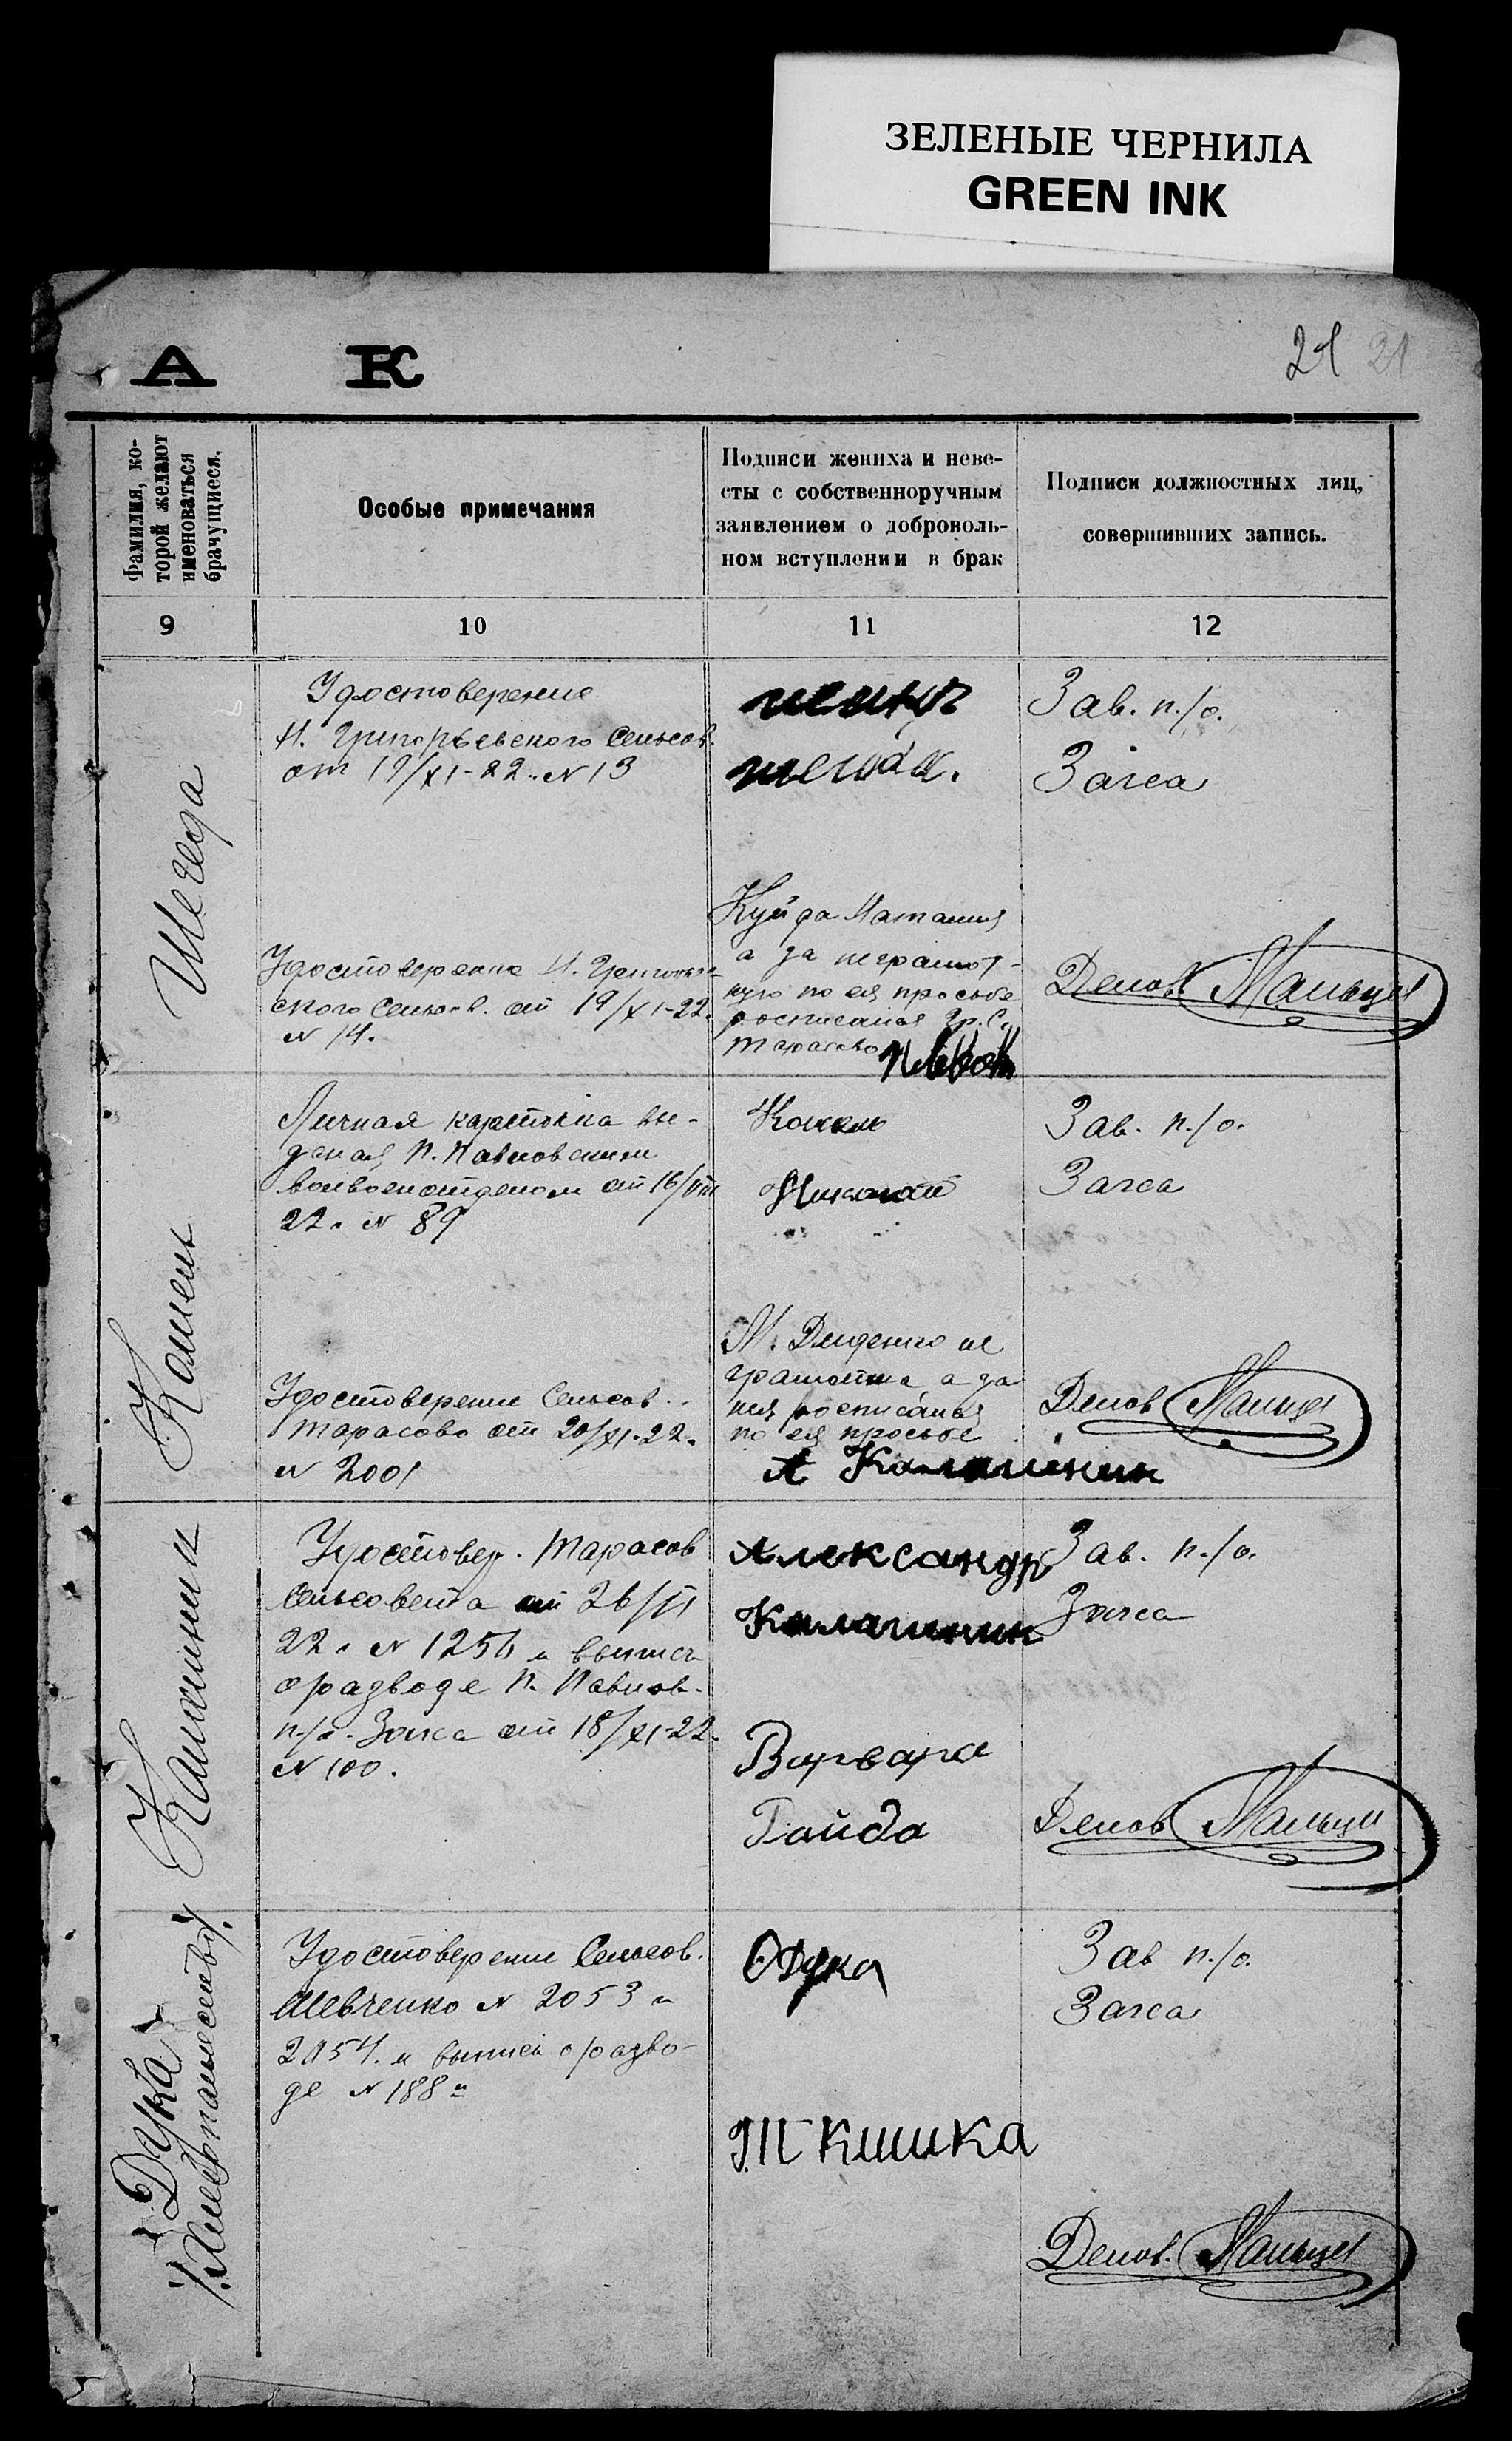 ЗЕЛЕНЫЕ ЧЕРНИЛА
GREEN INK
21 21
А К
Фамилия, ко-
торой желают
именоваться
брачущиеся.
Особые примечания
Подписи жениха и неве-
сты с собственноручным
заявлением о доброволь-
ном вступлении в брак
Подписи должностных лиц,
совершивших запись.
9
10
11
12
Шегеда
Удостоверение
Н. Григорьевского Сельсов.
от 19/XI-22 г. N 13
Удостоверение Н. Григорьев-
ского Сельсов. от 19/XI-22 г.
N 14.
шегеда.
Куйда Наталия
а за неграмот-
ную по ея просьбе
росписался Гр. С.
Тарасово
Зав. п./о.
Загса
Делов. Мальцев
Камень
Личная карточка вы-
даная Н. Павловским
волвоенотделом от 16/VIII
22 г. N 89
Удостоверение Сельсов.
Тарасово от 20/XI-22 г.
N 2001
Николай
М. Диденко не
грамотна, а за
нея росписался
по ея просьбе
А Калашник
Зав. п./о.
Загса
Делов Мальцев
Удостовер. Тарасов
Сельсовета от 26/VI
22 г. N 1256 и выпись
о разводе Н. Павлов.
п./о. Загса от 18/XI-22 г.
N 100.
Александр
Варвара
Гайда
Зав. п./о.
Загса
Делов Мальцев
Дука
Удостоверение Сельсов.
Шевченко N 2053 и
2054. и выпись о разво-
де N 188 и
Дука
Т Кишка
Зав п./о.
Загса
Делов. Мальцев